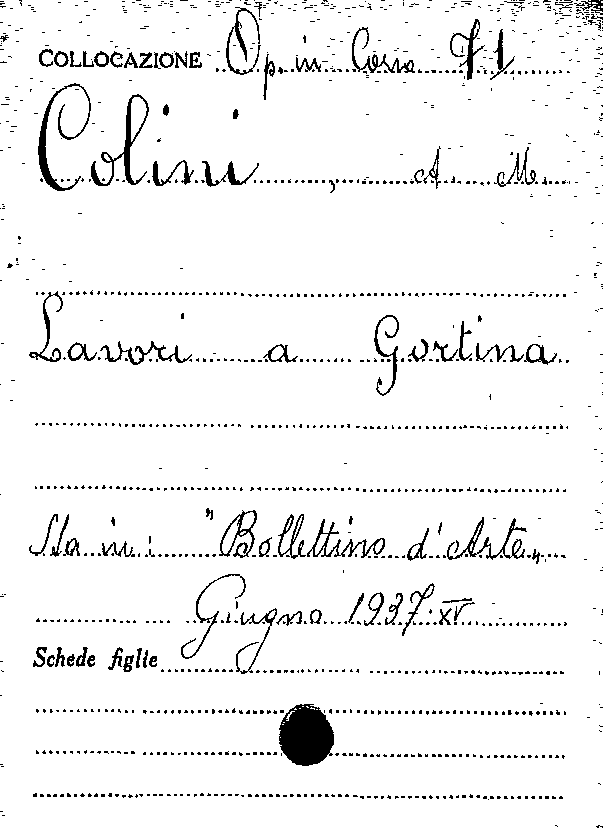 COLLOCAZIONE Op. in Corso 71
Colini, A. M.
Lavori a Gortina
Sta in: "Bollettino d'Arte„
Giugno 1937.XV
Schede figlie